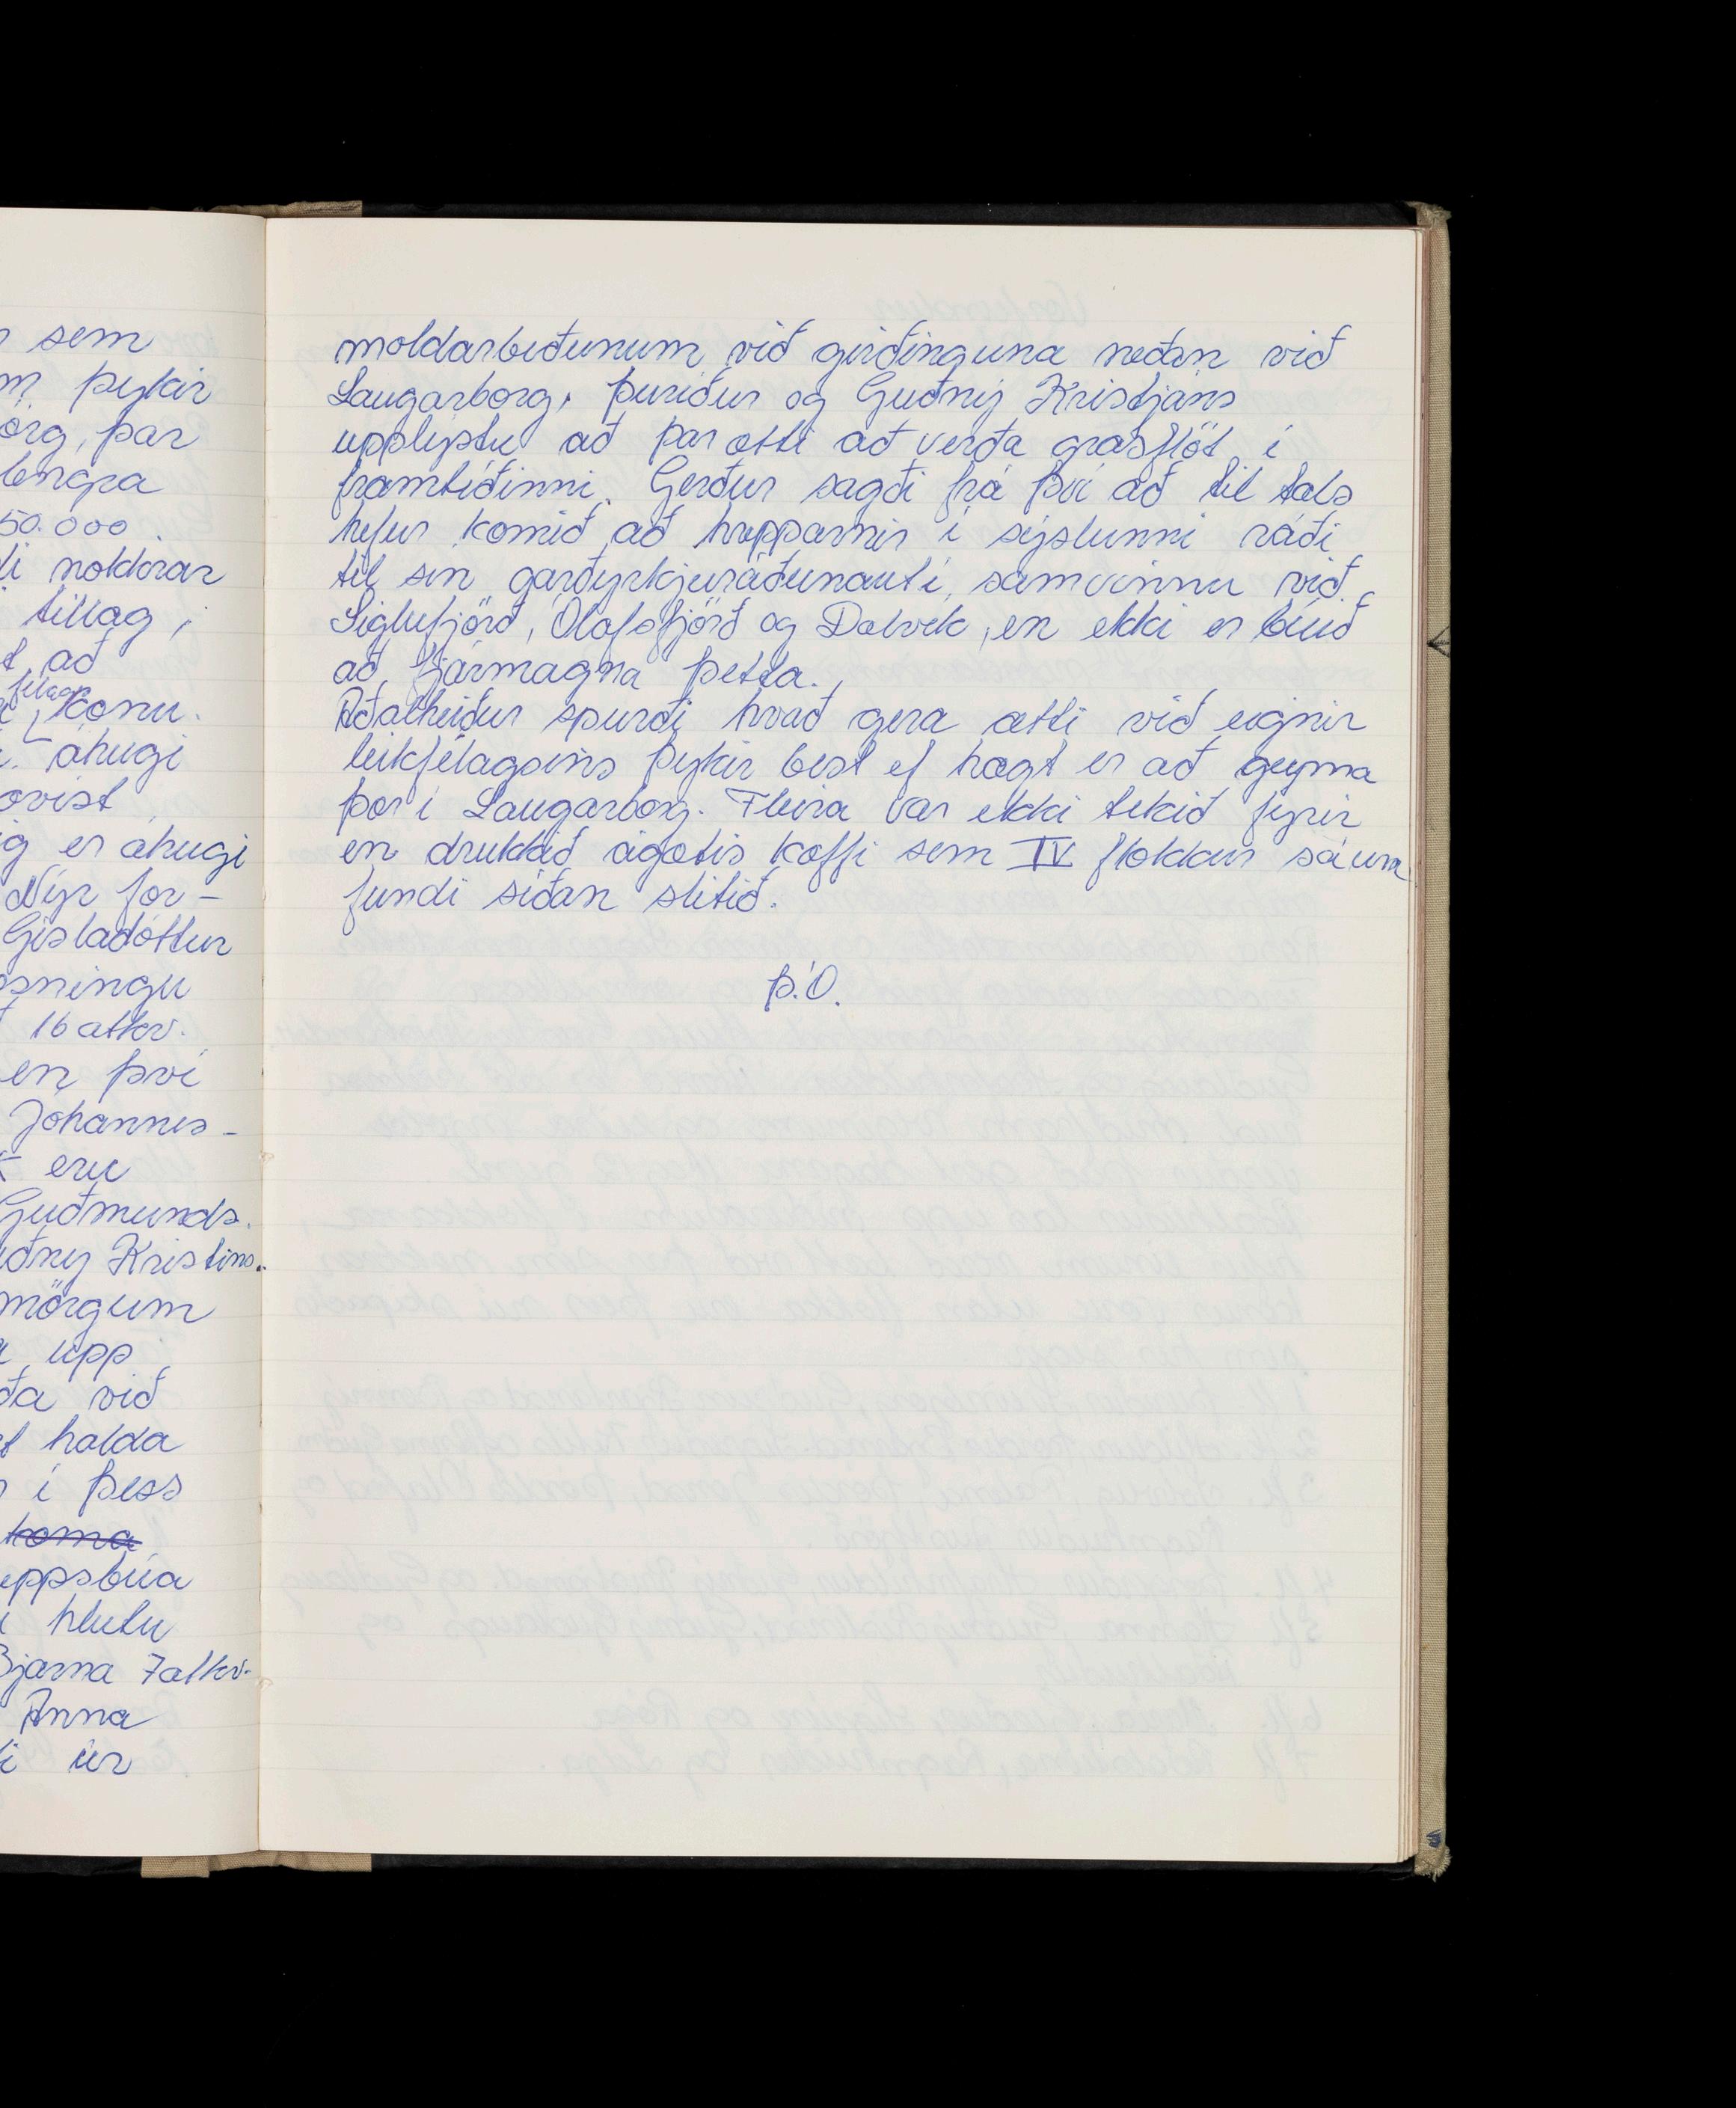 sem
þykir
þar
lengra
50.000
nokkrar
tillag
að
félags
konu.
áhugi
er áhugi
Nýr for-
Gísladóttur
16 atkv.
en því
Jóhannes-
eru
Guðmunds.
Kristins.
mörgum
upp
við
halda
í þess
koma
hlutu
Bjarna 7 atkv.
Anna
úr
moldarbeðunum við girðinguna neðan við
Laugarborg, Þuríður og Guðný Kristjáns
upplýstu að þar ætti að verða grasflöt í
framtíðinni. Gerður sagði frá því að til tals
hefur komið að hrepparnir í sýslunni ráði
til sín garðyrkjuráðunaut í samvinnu við
Siglufjörð, Ólafsfjörð og Dalvík, en ekki er búið
að fjármagna þetta.
Aðalheiður spurði hvað gera ætti við eignir
leikfélagsins þykir best ef hægt er að geyma
þær í Laugarborg. Fleira var ekki tekið fyrir
en drukkið ágætis kaffi sem IV flokkur sá um
fundi síðan slitið.
Þ.Ó.